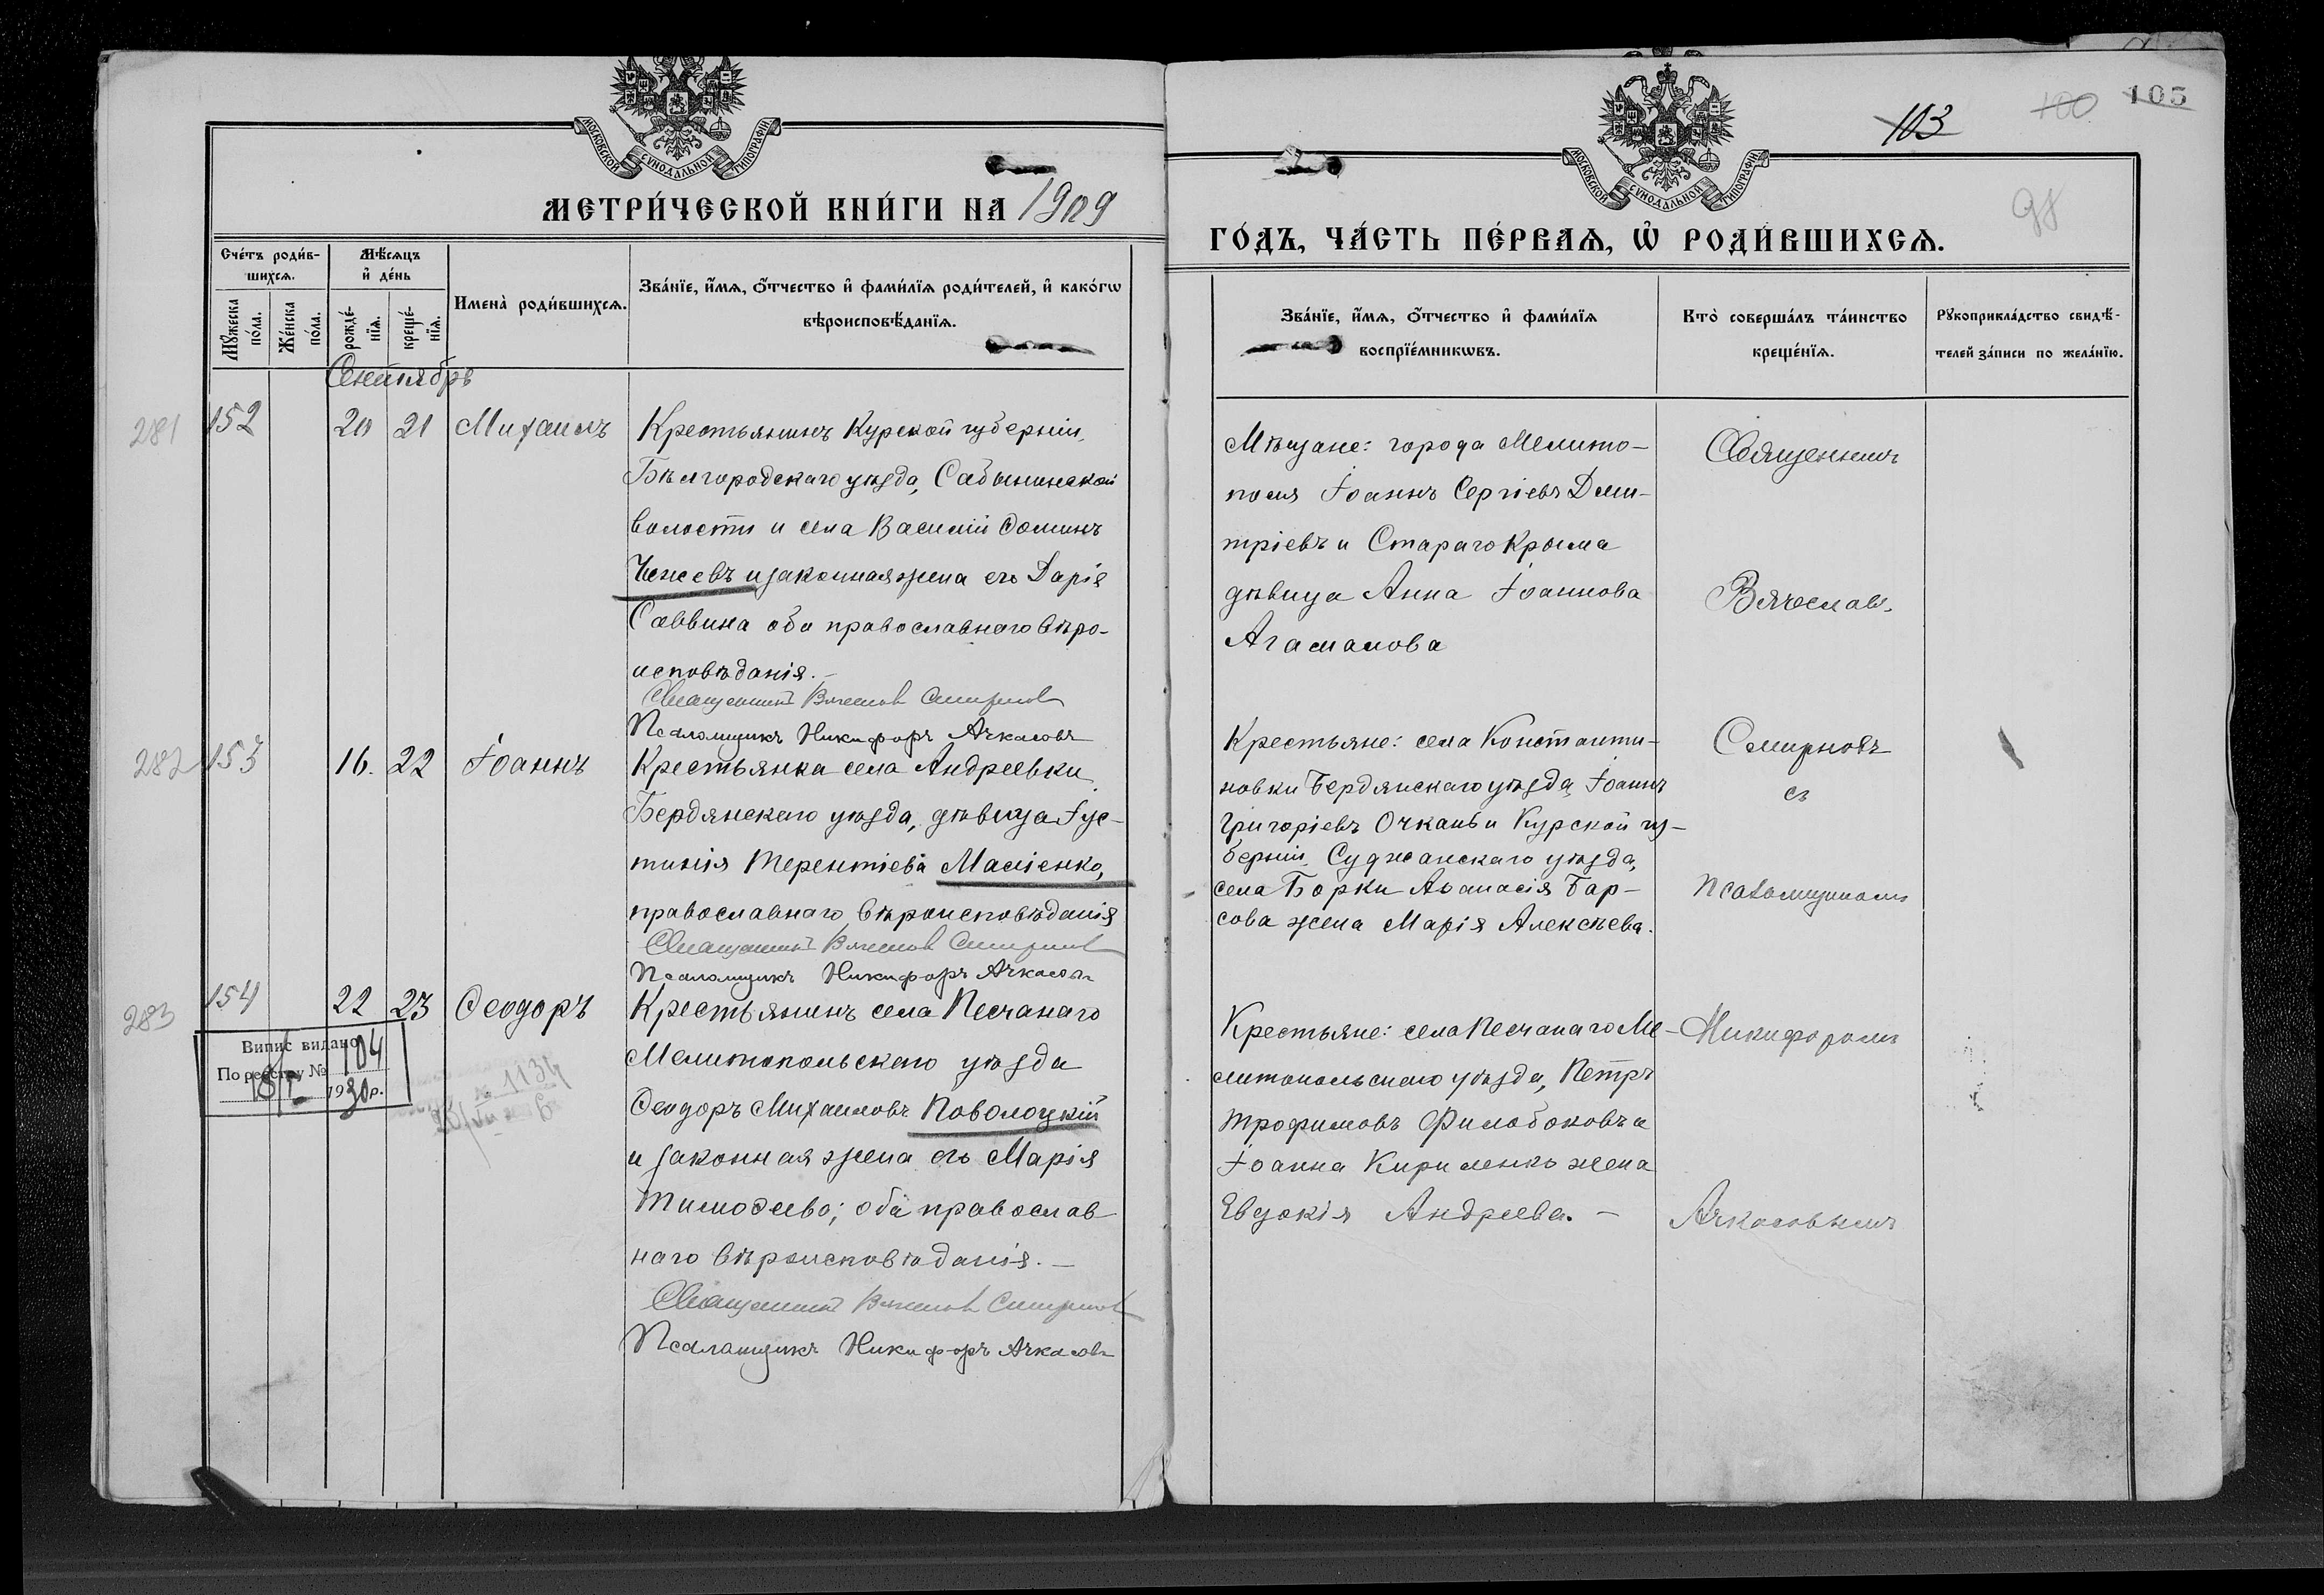 МОСКОВСКОЙ СѴНОДАЛЬНОЙ ТИПОГРАФІИ
МЕТРИ́ЧЕСКОЙ КНИ́ГИ НА 1909
Сче́тъ роди́в-
шихсѧ.
Мѣ́сѧцъ
и҆ де́нь
Мꙋ́жеска
по́ла.
Же́нска
по́ла.
рожде́-
нїѧ.
креще́-
нїѧ.
Имена̀ роди́вшихсѧ.
Зва́нїе, и҆́мѧ, ѻ҆́тчество и҆ фами́лїѧ роди́телей, и҆ како́гѡ
вѣроисповѣ́данїѧ.
Сентябрь
281 152 20 21 Михаилъ
Крестьянинъ Курской губерніи,
Бѣлгородскаго уѣзда, Сабынинской
волости и села Василій Ѳоминъ
Чежевъ и законная жена его Дарія
Саввина оба православнаго вѣро-
исповѣданія.-
Священникъ Вячеслав Смирнов
Псаломщикъ Никифоръ Ачкасовъ
282 153 16. 22 Іоаннъ
Крестьянка села Андреевки
Бердянскаго уѣзда, дѣвица Іус-
тинія Терентіева Масіенко,
православнаго вѣроисповѣданія
Священникъ Вячеслав Смирнов
Псаломщикъ Никифоръ Ачкасовъ
283 154 22 23 Ѳеодоръ
Крестьянинъ села Песчанаго
Мелитопольскаго уѣзда
Ѳеодоръ Михаиловъ Поволоцкій
и законная жена его Марія
Тимоѳеева; оба православ
наго вѣроисповѣданія.-
Священникъ Вячеслав Смирнов
Псаломщикъ Никифоръ Ачкасовъ
Випис видано
По реєстру № 104
1930р.
№ 1134
МОСКОВСКОЙ СѴНОДАЛЬНОЙ ТИПОГРАФІИ
103
100
105
98
ГО́ДЪ, ЧА́СТЬ ПЕ́РВАѦ, Ѡ҆ РОДИ́ВШИХСѦ.
Зва́нїе, и҆́мѧ, ѻ҆́тчество и҆ фами́лїѧ
воспрїе́мникѡвъ.
Кто̀ соверша́лъ та́инство
креще́нїѧ.
Рꙋкоприкла́дство свидѣ́-
телей за́писи по жела́нїю.
Мѣщане: города Мелито-
поля Іоаннъ Сергіевъ Дми-
тріевъ и Стараго Крыма
дѣвица Анна Іоаннова
Агаманова
Крестьяне: села Константи-
новки Бердянскаго уѣзда Іоаннъ
Григоріевъ Очкань и Курской гу-
берніи Суджанскаго уѣзда,
села Борки Аѳанасія Бар-
сова жена Марія Алексѣева.
Крестьяне: села Песчанаго Ме-
литопольскаго уѣзда, Петръ
Трофимовъ Филобоковъ и
Іоанна Кириленко жена
Евдокія Андреева. -
Священникъ
Вячеслав.
Смирновъ
съ
псаломщикомъ
Никифоромъ
Ачкасовымъ